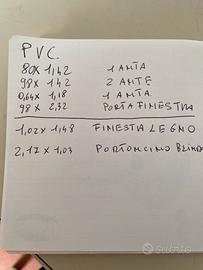 PVC.
80x1,42 1 ANTA
98x142 2 ANTE
0,64x1,18 1 ANTA
98x2,32 PORTAFINESTRA
1,02x1,48 FINESTRA LEGNO
2,17x1,03 PORTONCINO BLINDA
subito